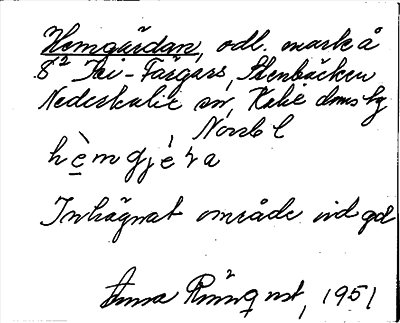 Hemgärdan, odl. mark å
8² Tri-Färgars, Stenbäcken
Nederkalix sn, Kalix dms hg
Norrb l
hèmgjèra
Inhägnat område vid gd
Anna Rönqvist, 1951